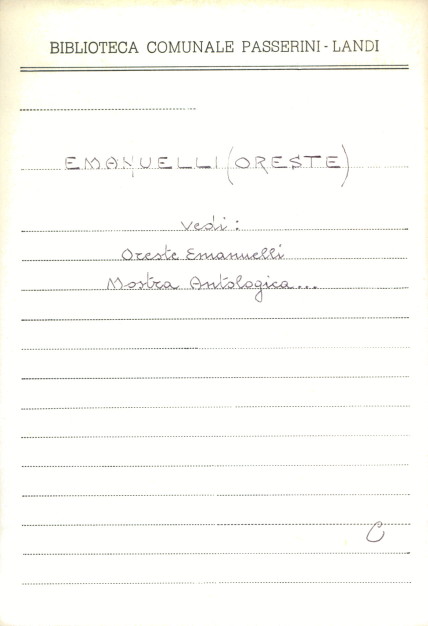 BIBLIOTECA COMUNALE PASSERINI - LANDI
EMANUELLI (ORESTE)
vedi:
Oreste Emanuelli
Mostra Antologica...
C